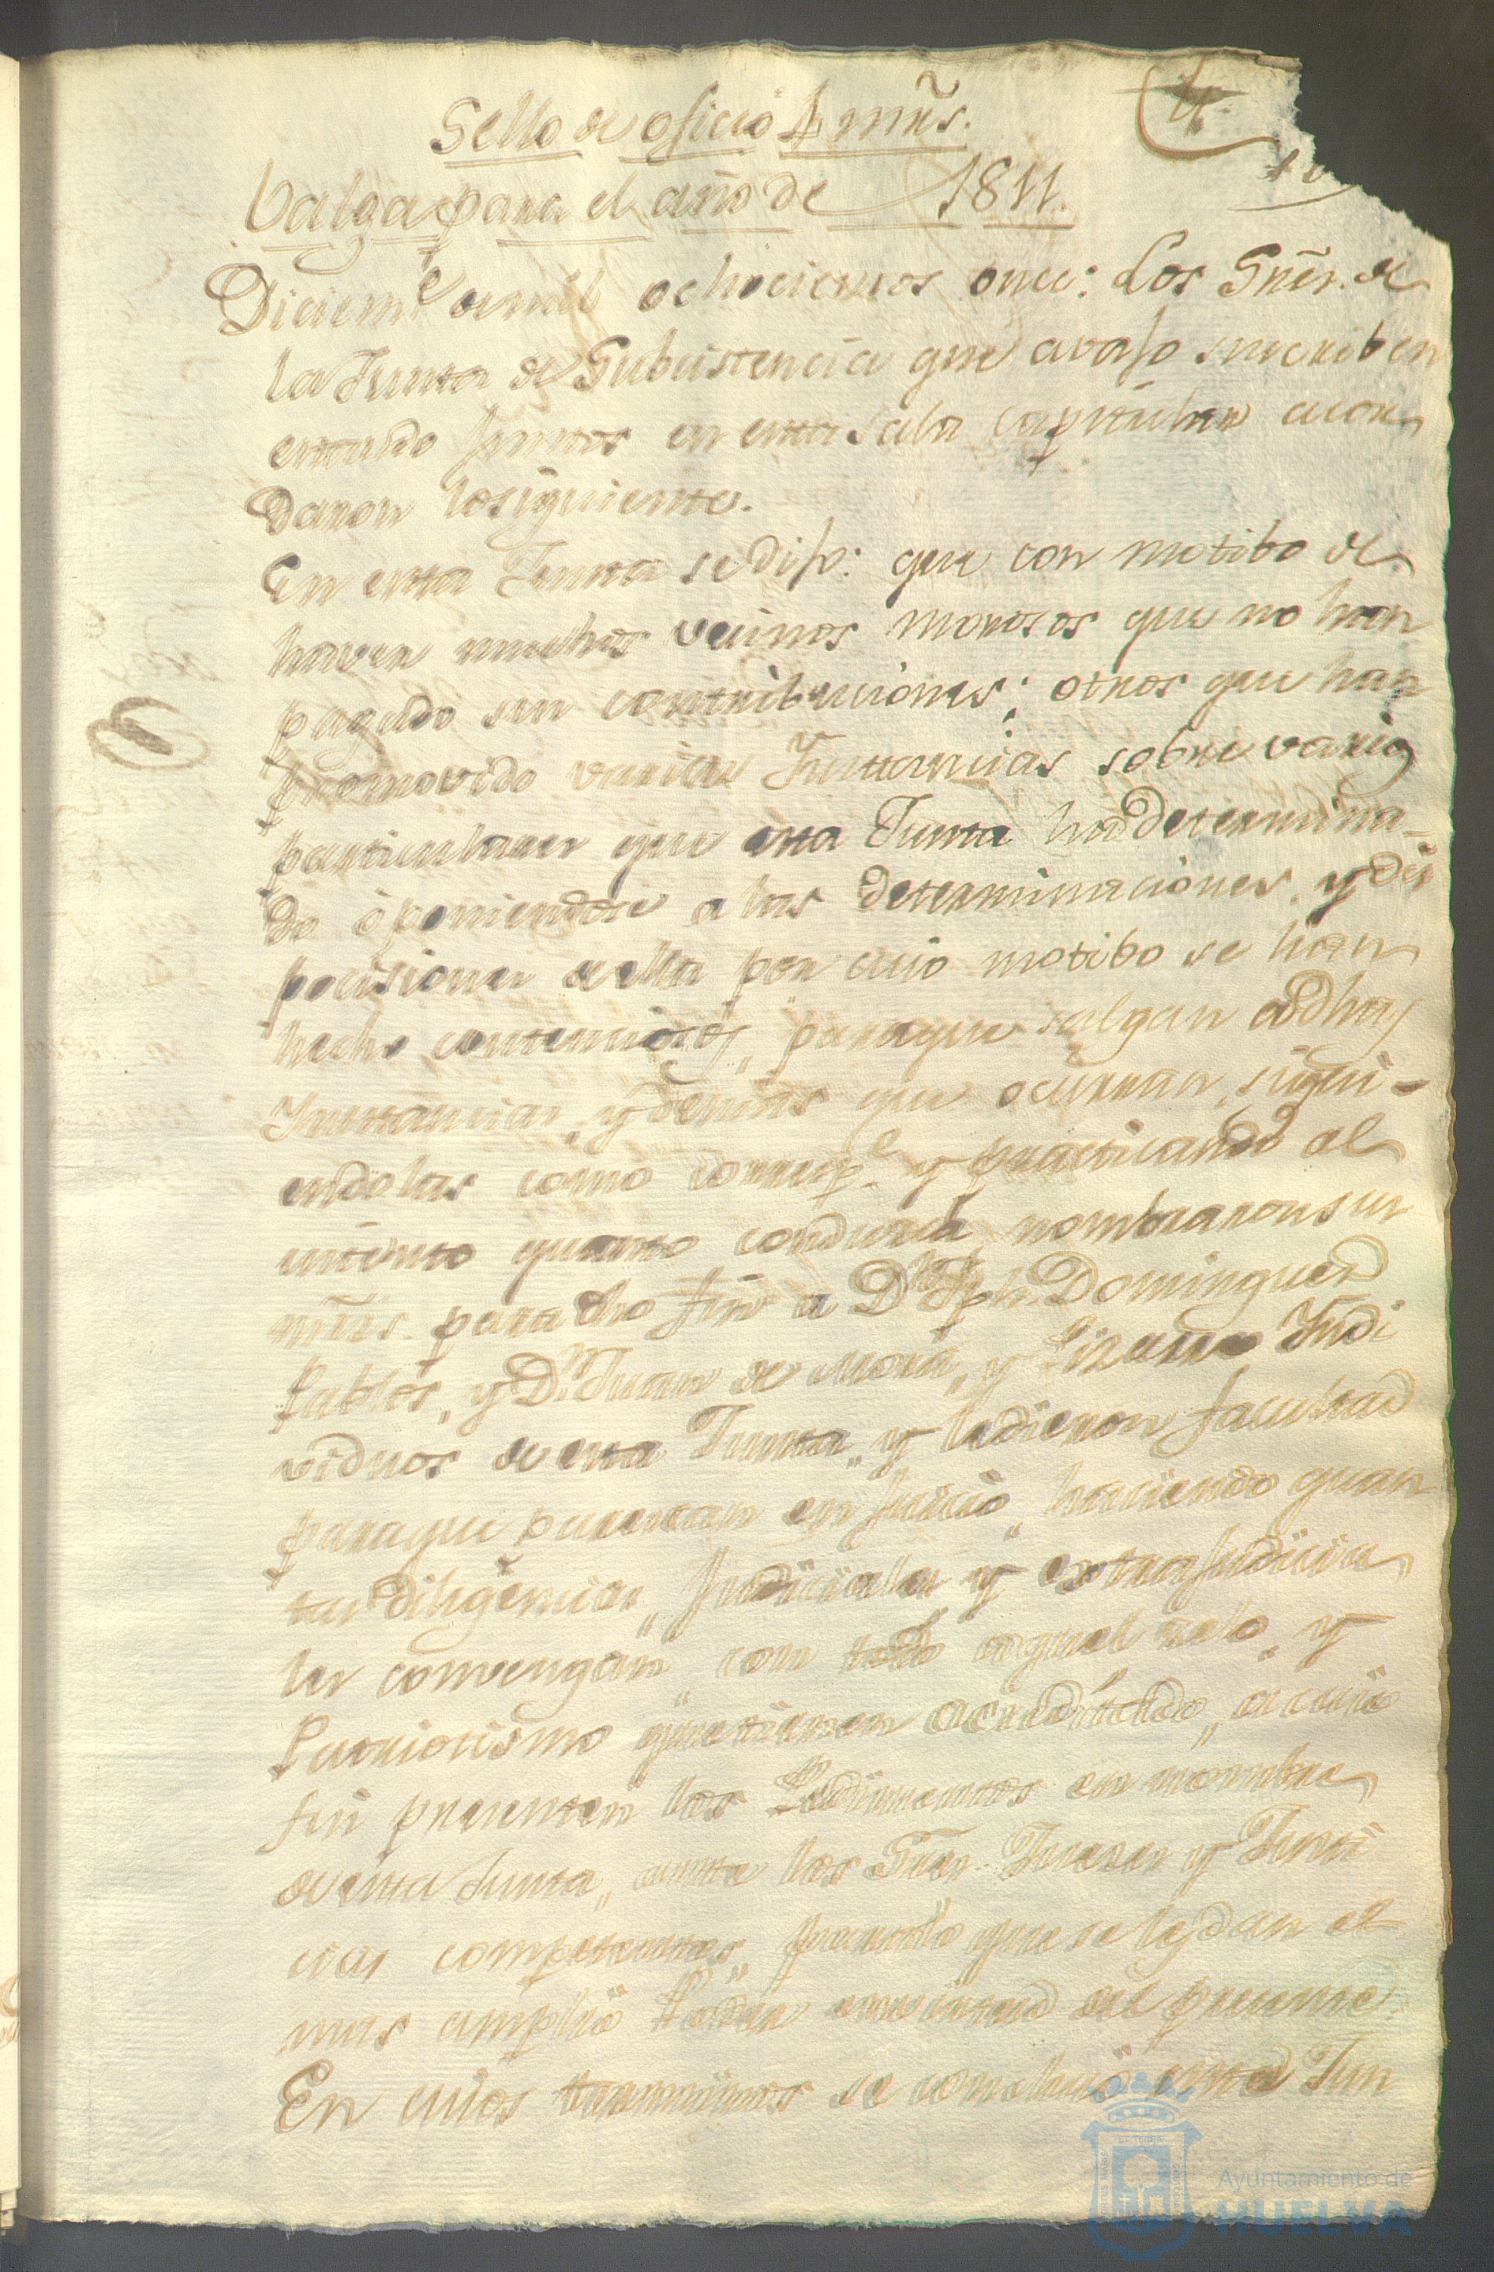 Sello de oficio 4 mrs̃.
Valga para el año de 1811.
Diciem.e de mil ochocientos once: Los Sres̃. de
la Junta de Subsistencia que avajo suscriben
estando juntos en esta sala capitular acor
daron lo siguiente.
En esta Junta se dijo: que con motibo de
haver muchos vecinos morosos que no han
pagado sus contribuciones; otros que han
promovido varias Instancias sobre varios
particulares que esta Junta ha determina-
do òponiendose a las determinaciones, y dis
pocisiones de ella por cuio motibo se han
hecho contenciosos, para que salgan a dhas
Instancias, y demas que ocurran, sigui-
endolas como corresp.e y practicando al
intento quanto conduzca nombraron sus
mrs̃. para dho fin a Dn Jph. Dominguez
Pables, y Dn Juan de Mora, y Lizana Indi
viduos de esta Junta, y le dieron facultad
para que parescan en juicio, haciendo quan
tas diligencias judiciales y extrajudicia
les convengan, con todo aquel zelo, y
Patriotismo que tienen acreditado, a cuio
fin presenten los Pedimentos en nombre
de esta Junta, ante los Sres. Jueces y Justi
cias competentes, para lo que se les dan el
mas amplio Poder en virtud del presente.
En cuios terminos se concluiò esta Jun
Ayuntamiento de
HUELVA